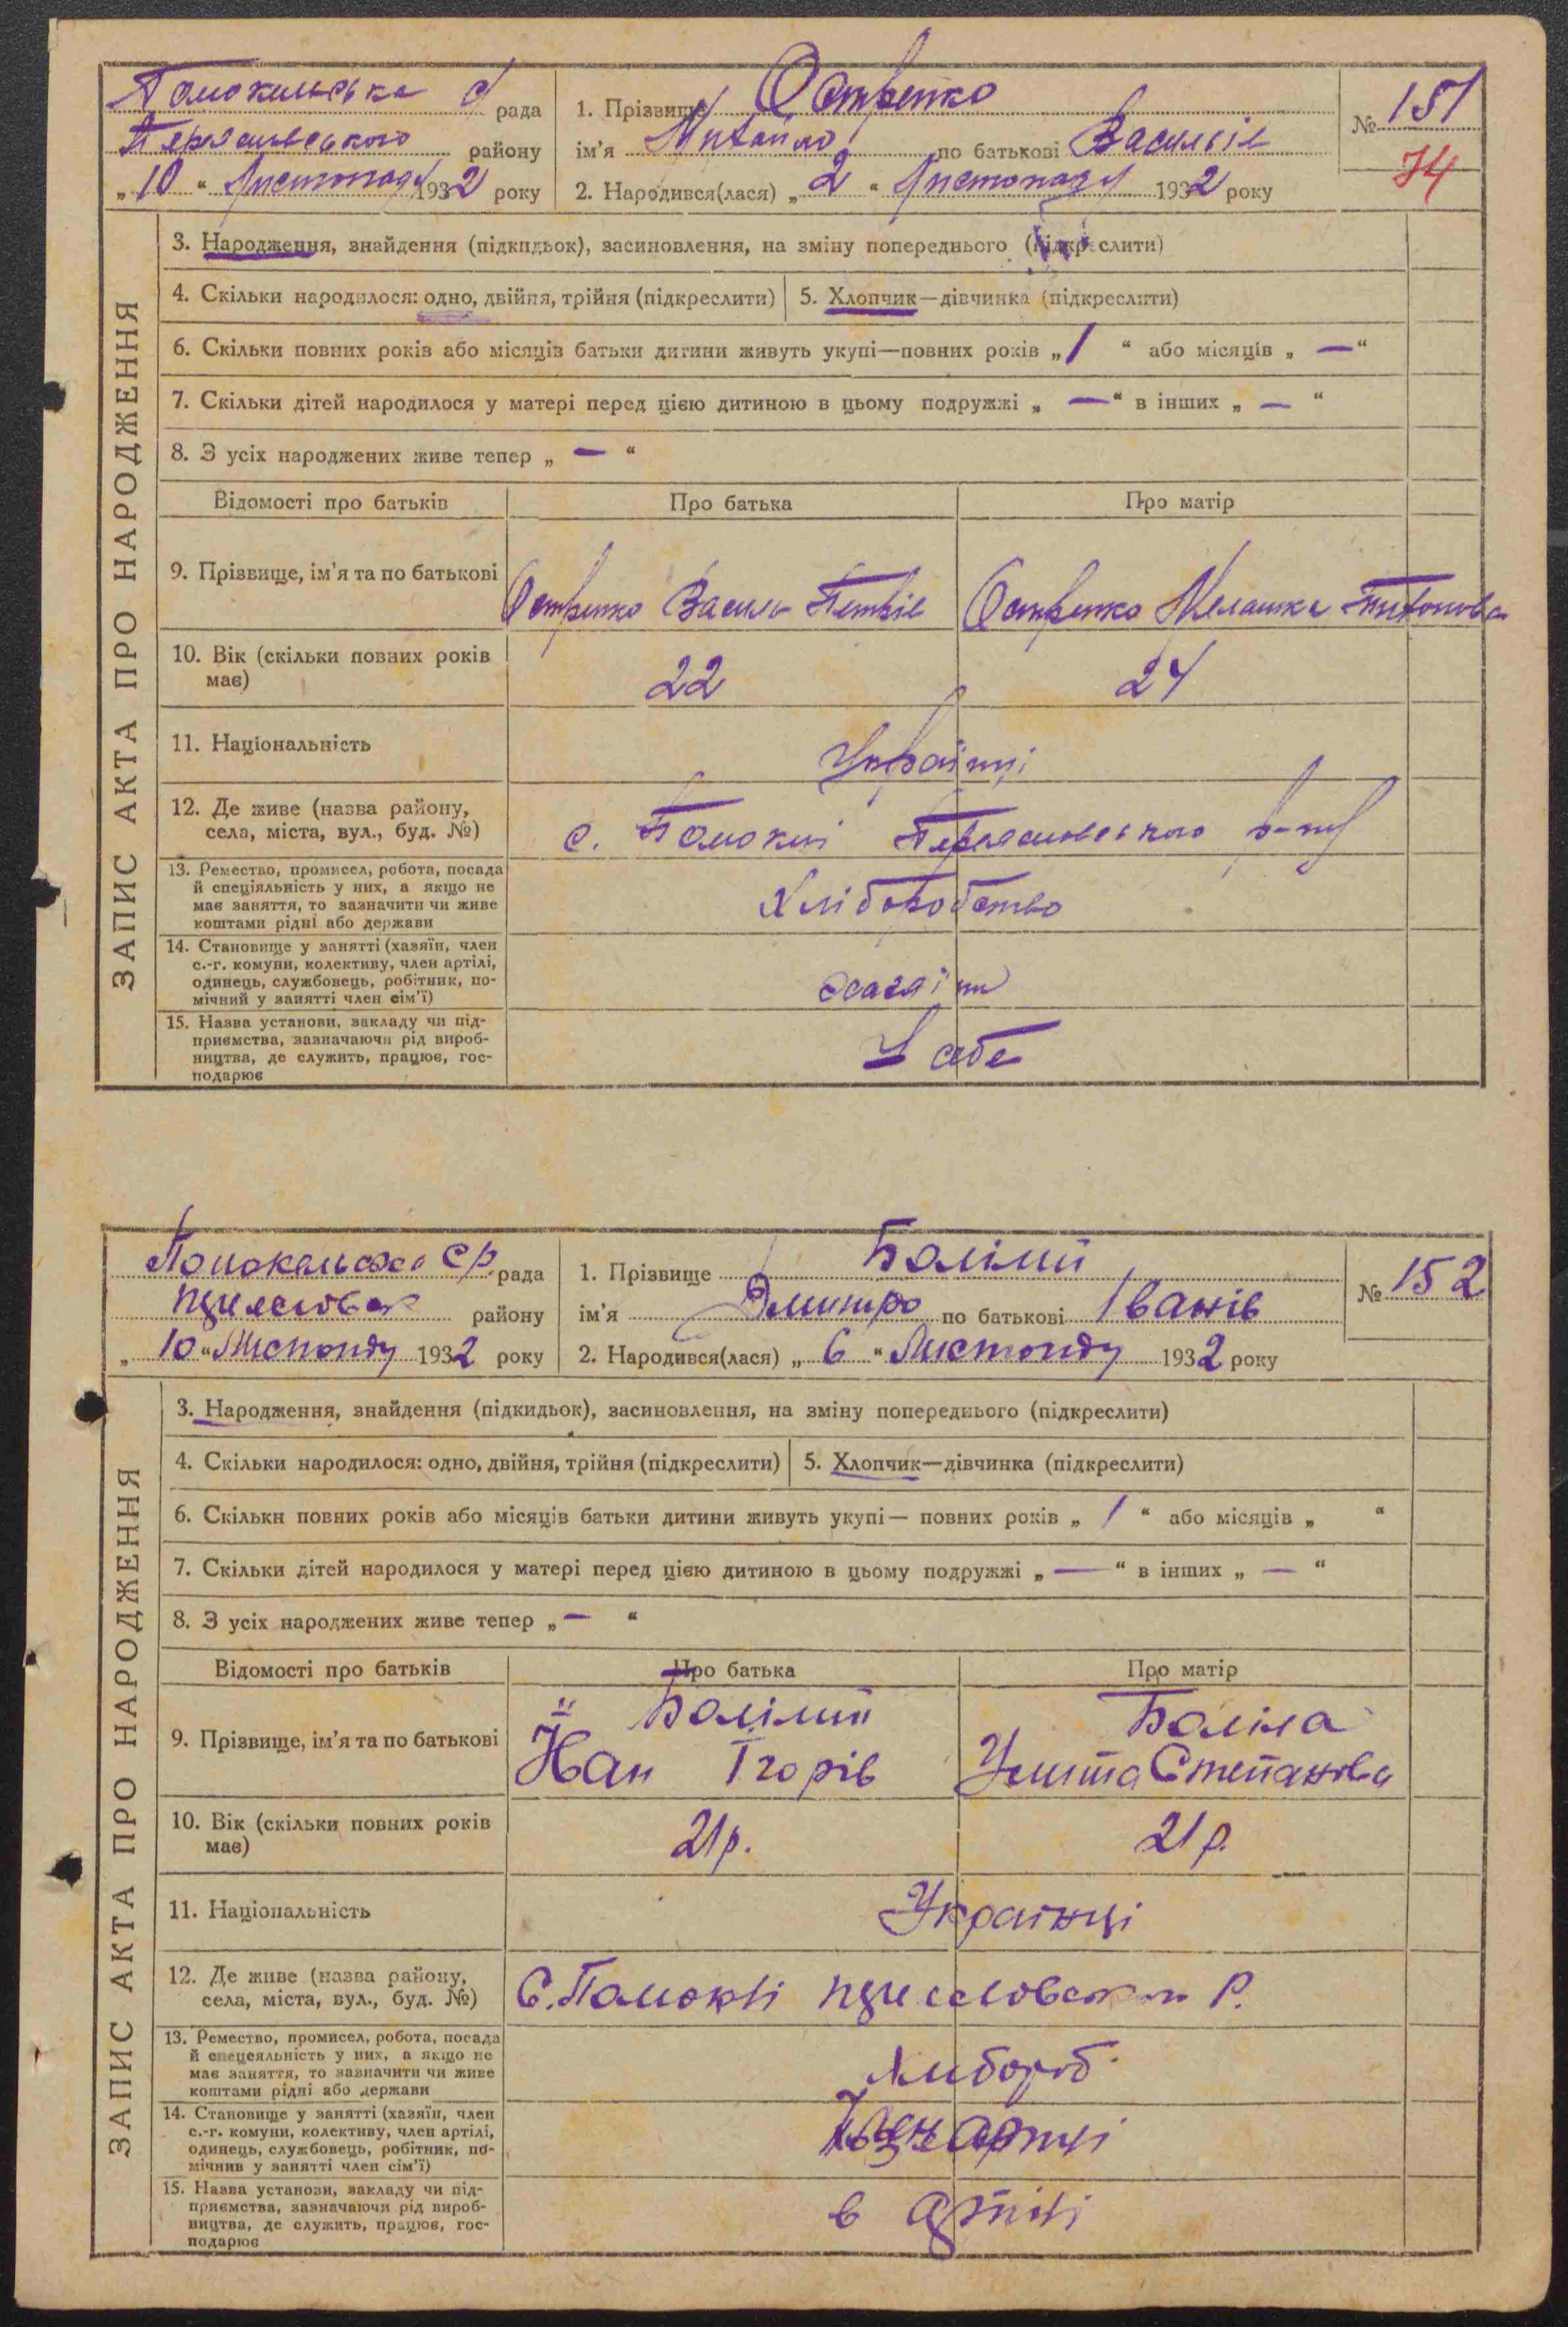 Помокельська с рада
Переяславського району
„10“ Листопаду 1932 року
1. Прізвище Остренко
ім'я Михайло по батькові Василів
2. Народився(лася) „2“ Листопаду 1932 року
№ 151
74
ЗАПИС АКТА ПРО НАРОДЖЕННЯ
3. Народження, знайдення (підкидьок), засиновлення, на зміну попереднього (підкреслити)
4. Скільки народилося: одно, двійня, трійня (підкреслити)
5. Хлопчик—дівчинка (підкреслити)
6. Скільки повних років або місяців батьки дитини живуть укупі—повних років „1“ або місяців „—“
7. Скільки дітей народилося у матері перед цією дитиною в цьому подружжі „—“ в інших „—“
8. З усіх народжених живе тепер „—“
Відомості про батьків
Про батька
Про матір
9. Прізвище, ім'я та по батькові
Остренко Василь Петрів
Остренко Мелашка Тихонова
10. Вік (скільки повних років
має)
22
24
11. Національність
Українці
12. Де живе (назва району,
села, міста, вул., буд. №)
с. Помоклі Переяславського р-ну
13. Ремество, промисел, робота, посада
й спеціяльність у них, а якщо не
має заняття, то зазначити чи живе
коштами рідні або держави
Хліборобство
14. Становище у занятті (хазяїн, член
с.-г. комуни, колективу, член артілі,
одинець, службовець, робітник, по-
мічний у занятті член сім'ї)
хазяїни
15. Назва установи, закладу чи під-
приємства, зазначаючи рід вироб-
ництва, де служить, працює, гос-
подарює
У себе
Помокельска ср. рада
району
„10“ Листопду 1932 року
1. Прізвище Болілий
ім'я Дмитро по батькові Іванів
2. Народився(лася) „6“ Листопду 1932 року
№ 152
ЗАПИС АКТА ПРО НАРОДЖЕННЯ
3. Народження, знайдення (підкидьок), засиновлення, на зміну попереднього (підкреслити)
4. Скільки народилося: одно, двійня, трійня (підкреслити)
5. Хлопчик—дівчинка (підкреслити)
6. Скільки повних років або місяців батьки дитини живуть укупі— повних років „1“ або місяців „ “
7. Скільки дітей народилося у матері перед цією дитиною в цьому подружжі „—“ в інших „—“
8. З усіх народжених живе тепер „—“
Відомості про батьків
Про батька
Про матір
9. Прізвище, ім'я та по батькові
Болілий
Йван Ігорів
Боліла
Улита Степанова
10. Вік (скільки повних років
має)
21р.
21р.
11. Національність
Українці
12. Де живе (назва району,
села, міста, вул., буд. №)
С. Помоклі Р.
13. Ремество, промисел, робота, посада
й спецеяльність у них, а якщо не
має заняття, то зазначити чи живе
коштами рідні або держави
хлібороб
14. Становище у занятті (хазяїн, член
с.-г. комуни, колективу, член артілі,
одинець, службовець, робітник, по-
мічнив у занятті член сім'ї)
артилі
15. Назва установи, закладу чи під-
приємства, зазначаючи рід вироб-
ництва, де служить, працює, гос-
подарює
в артілі